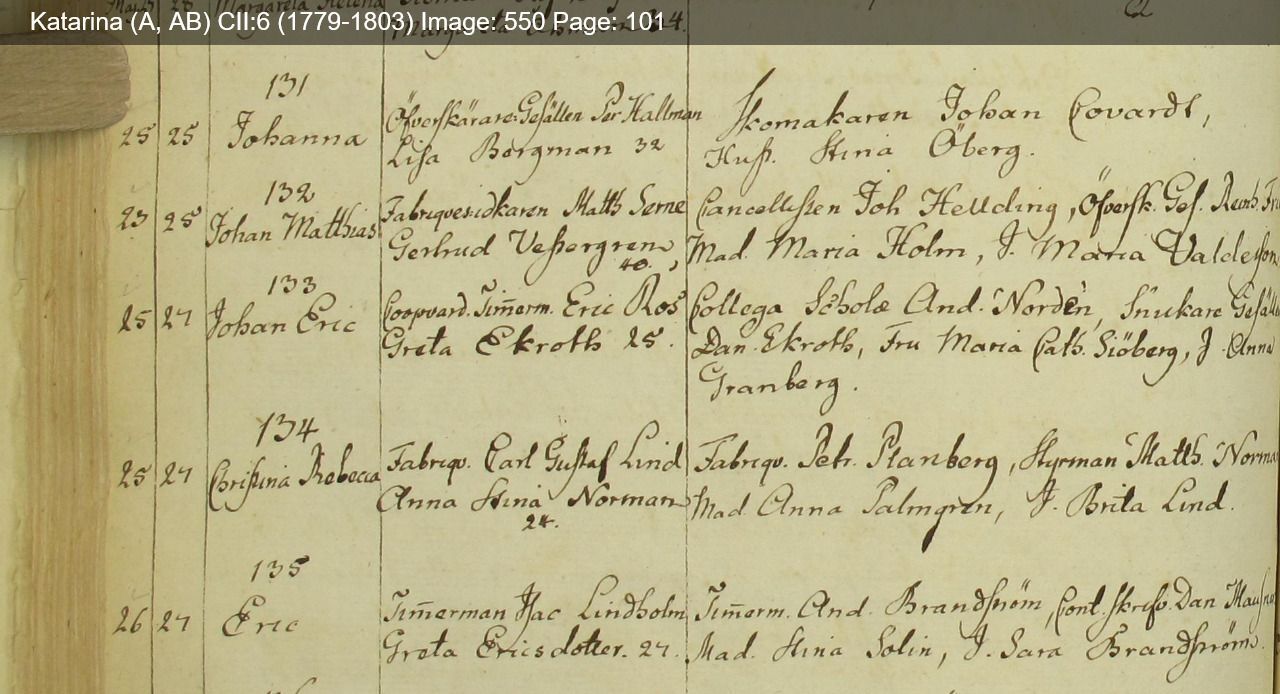 Katarina (A, AB) CII:6 (1779-1803) Image: 550 Page: 101
131
25 25 Johanna
Öfverskärare Gesällen Per Hallman
Lisa Bergman 32
Skomakaren Johan Covardt,
Hust. Stina Öberg.
132
23 25 Johan Matthias
Fabriquesidkaren Matth Serne
Gertrud Vestergren,
40.
Cancellisten Joh Hellding, Öfversk. Ges.
Mad. Maria Holm, J. Maria
133
25 27 Johan Eric
Coopvard. Tim̄erm. Eric Ros
Greta Ekroth 25.
Collega Scholæ And. Nordén, Snickare Gesäll
Dan. Ekroth, Fru Maria Cath. Siöberg, J. Anna
Granberg.
134
25 27 Christina Rebecca
Fabriqv. Carl Gustaf Lind
Anna Stina Norman
24.
Fabriqv. Petr. Planberg, Styrman Matth. Norman
Mad. Anna Palmgren, J. Brita Lind.
135
26 27 Eric
Tim̄erman Isac Lindholm
Greta Ericsdotter. 27.
Tim̄erm. And. Brandström, Cont. Skrifv. Dan
Mad. Stina Solin, J. Sara Brandström.